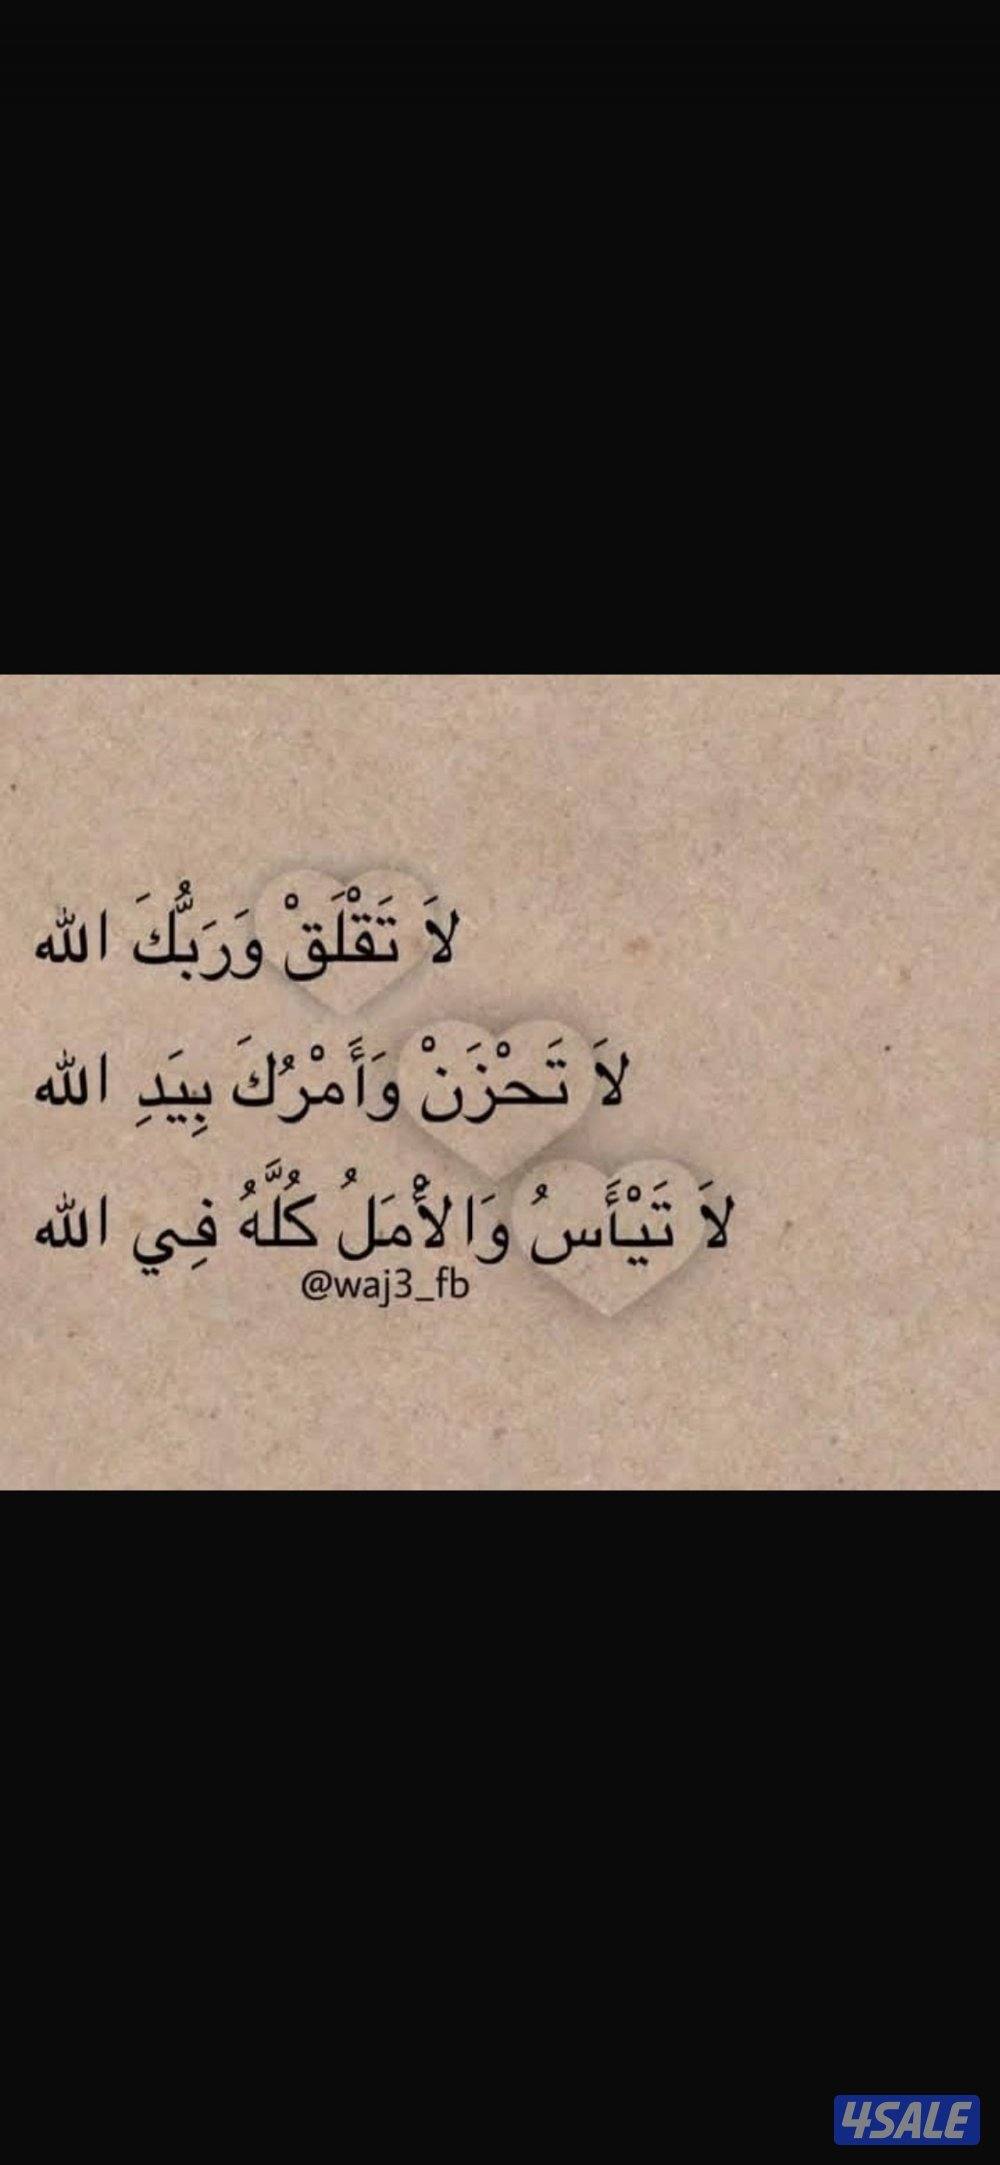 لاَ تَقْلَقْ وَرَبُّكَ الله
لاَ تَحْزَنْ وَأَمْرُكَ بِيَدِ الله
لاَ تَيْأَسُ وَالأْمَلُ كُلَّهُ فِي الله
@waj3_fb
4SALE